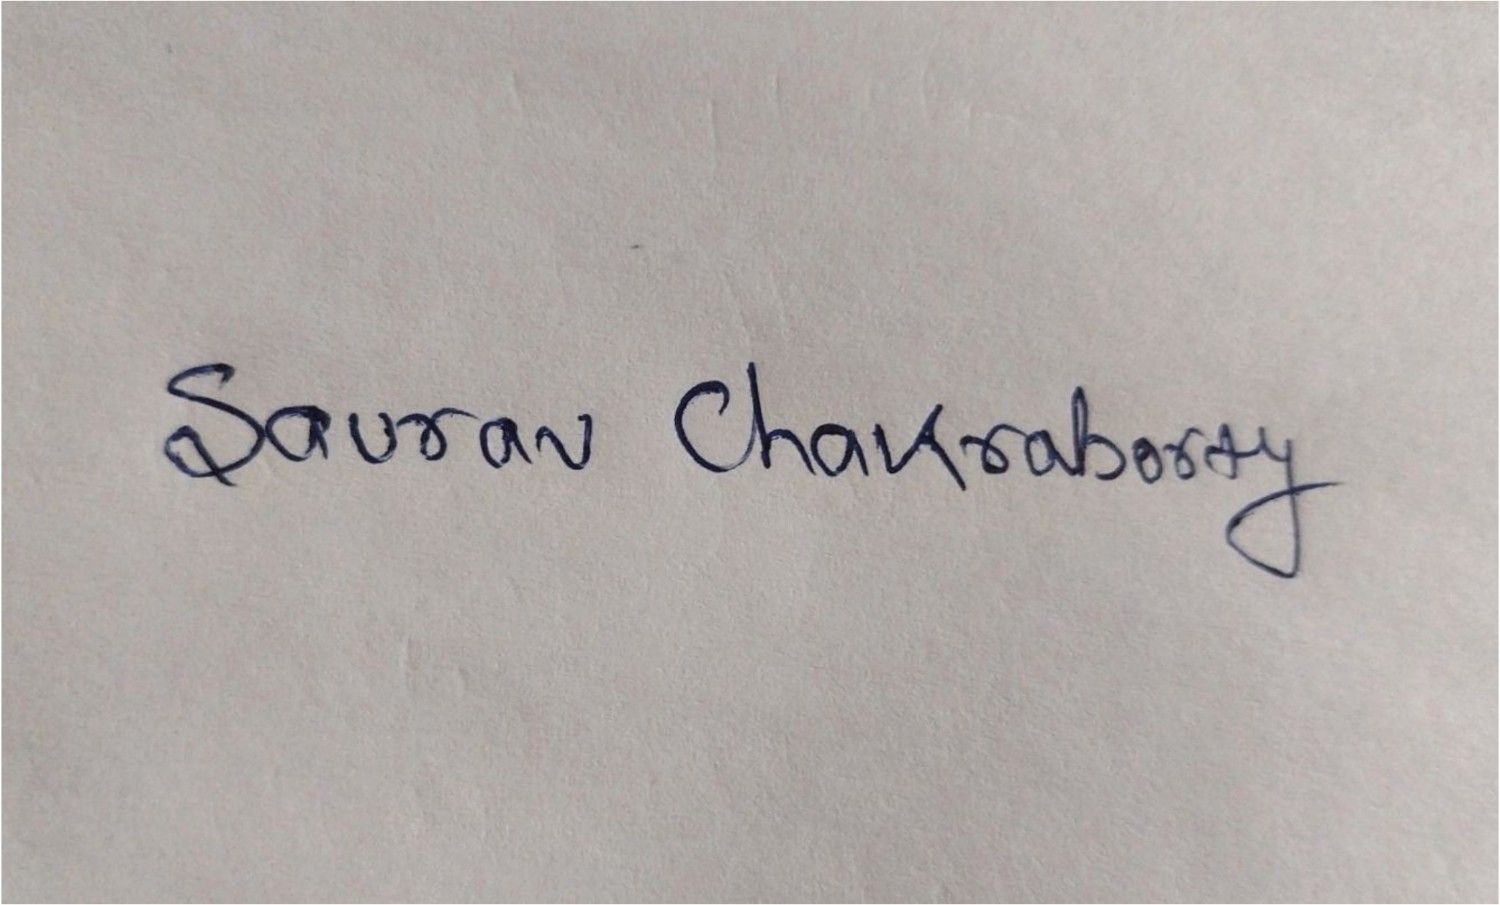 Saurav Chakraborty